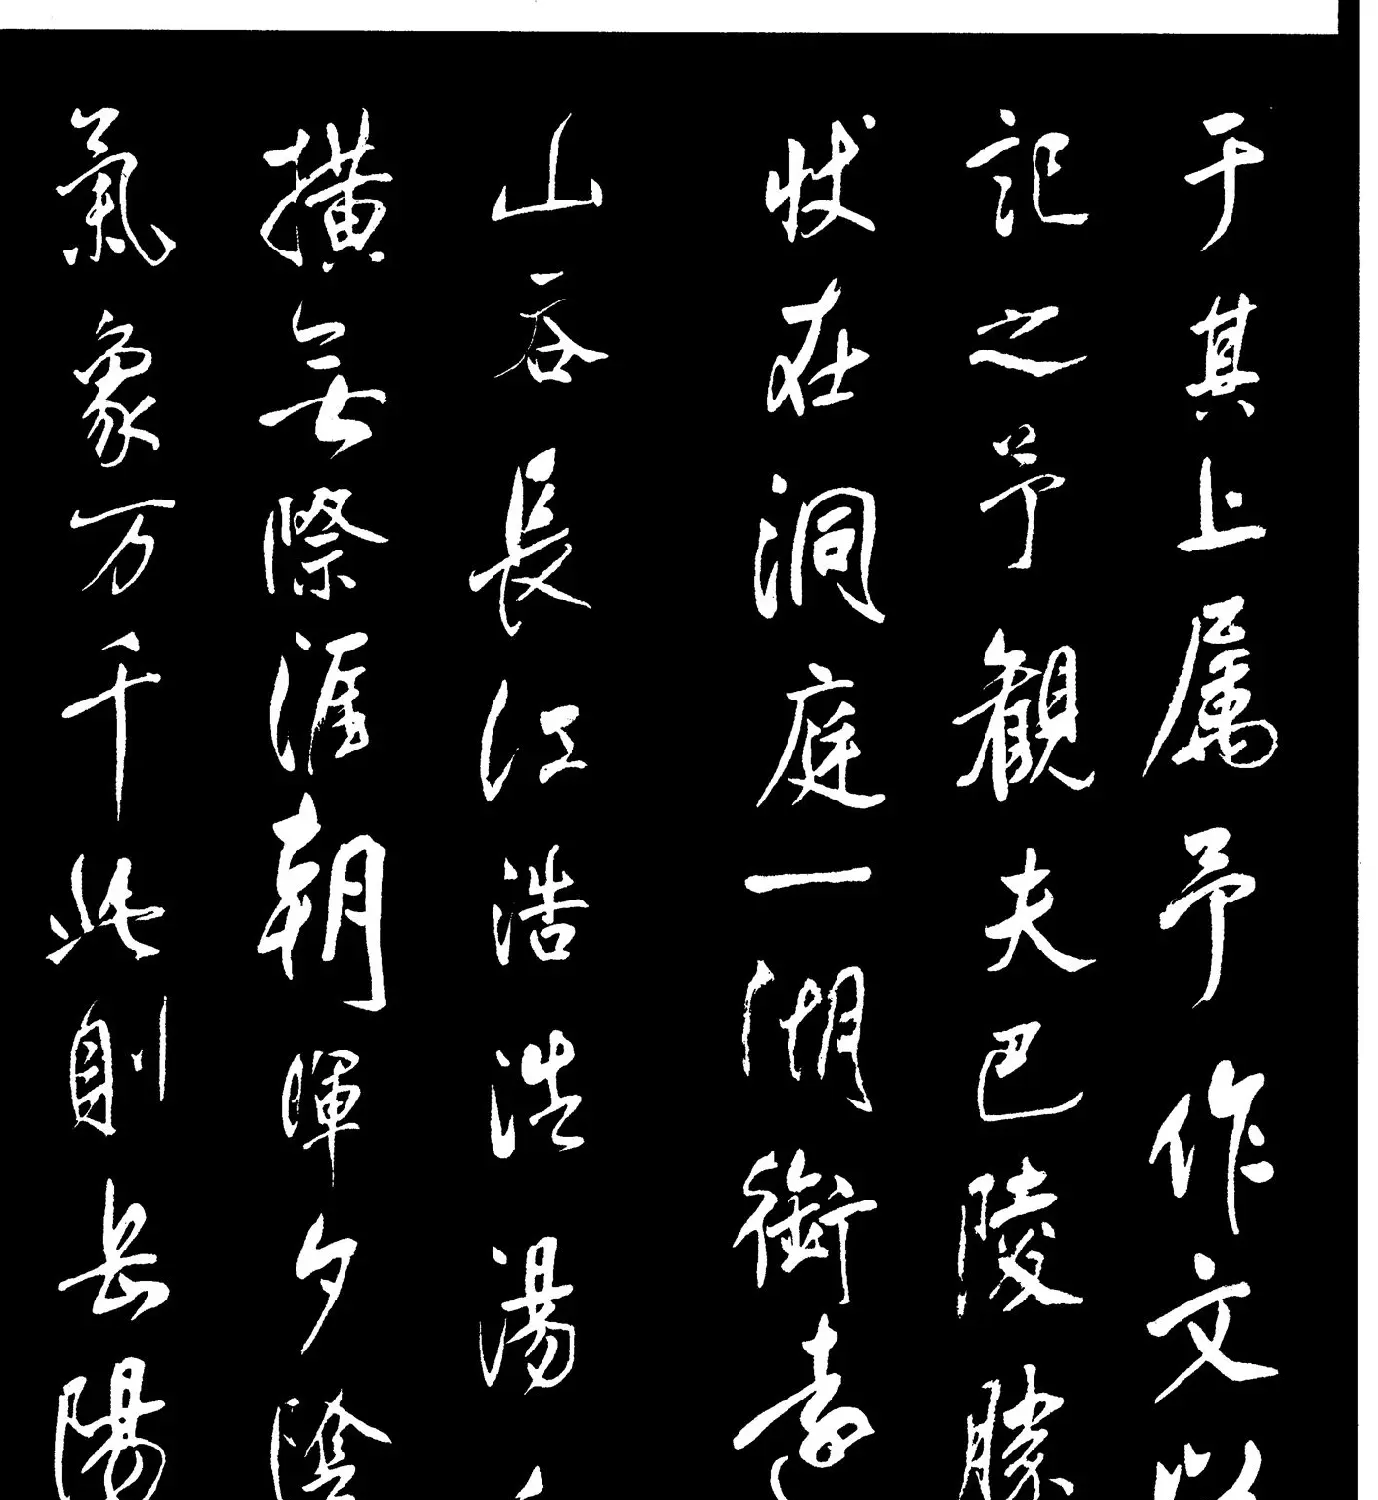 于其上属予作文以
记之予觀夫巴陵勝
状在洞庭一湖銜遠
山吞長江浩浩湯
横無際涯朝暉夕陰
氣象万千此則岳陽